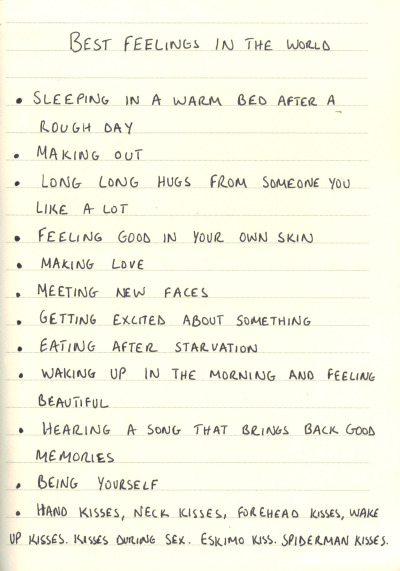 BEST FEELINGS IN THE WORLD
• SLEEPING IN A WARM BED AFTER A
ROUGH DAY
• MAKING OUT
• LONG LONG HUGS FROM SOMEONE YOU
LIKE A LOT
• FEELING GOOD IN YOUR OWN SKIN
• MAKING LOVE
• MEETING NEW FACES
• GETTING EXCITED ABOUT SOMETHING
• EATING AFTER STARVATION
• WAKING UP IN THE MORNING AND FEELING
BEAUTIFUL
• HEARING A SONG THAT BRINGS BACK GOOD
MEMORIES
• BEING YOURSELF
• HAND KISSES, NECK KISSES, FOREHEAD KISSES, WAKE
UP KISSES. KISSES DURING SEX. ESKIMO KISS. SPIDERMAN KISSES.